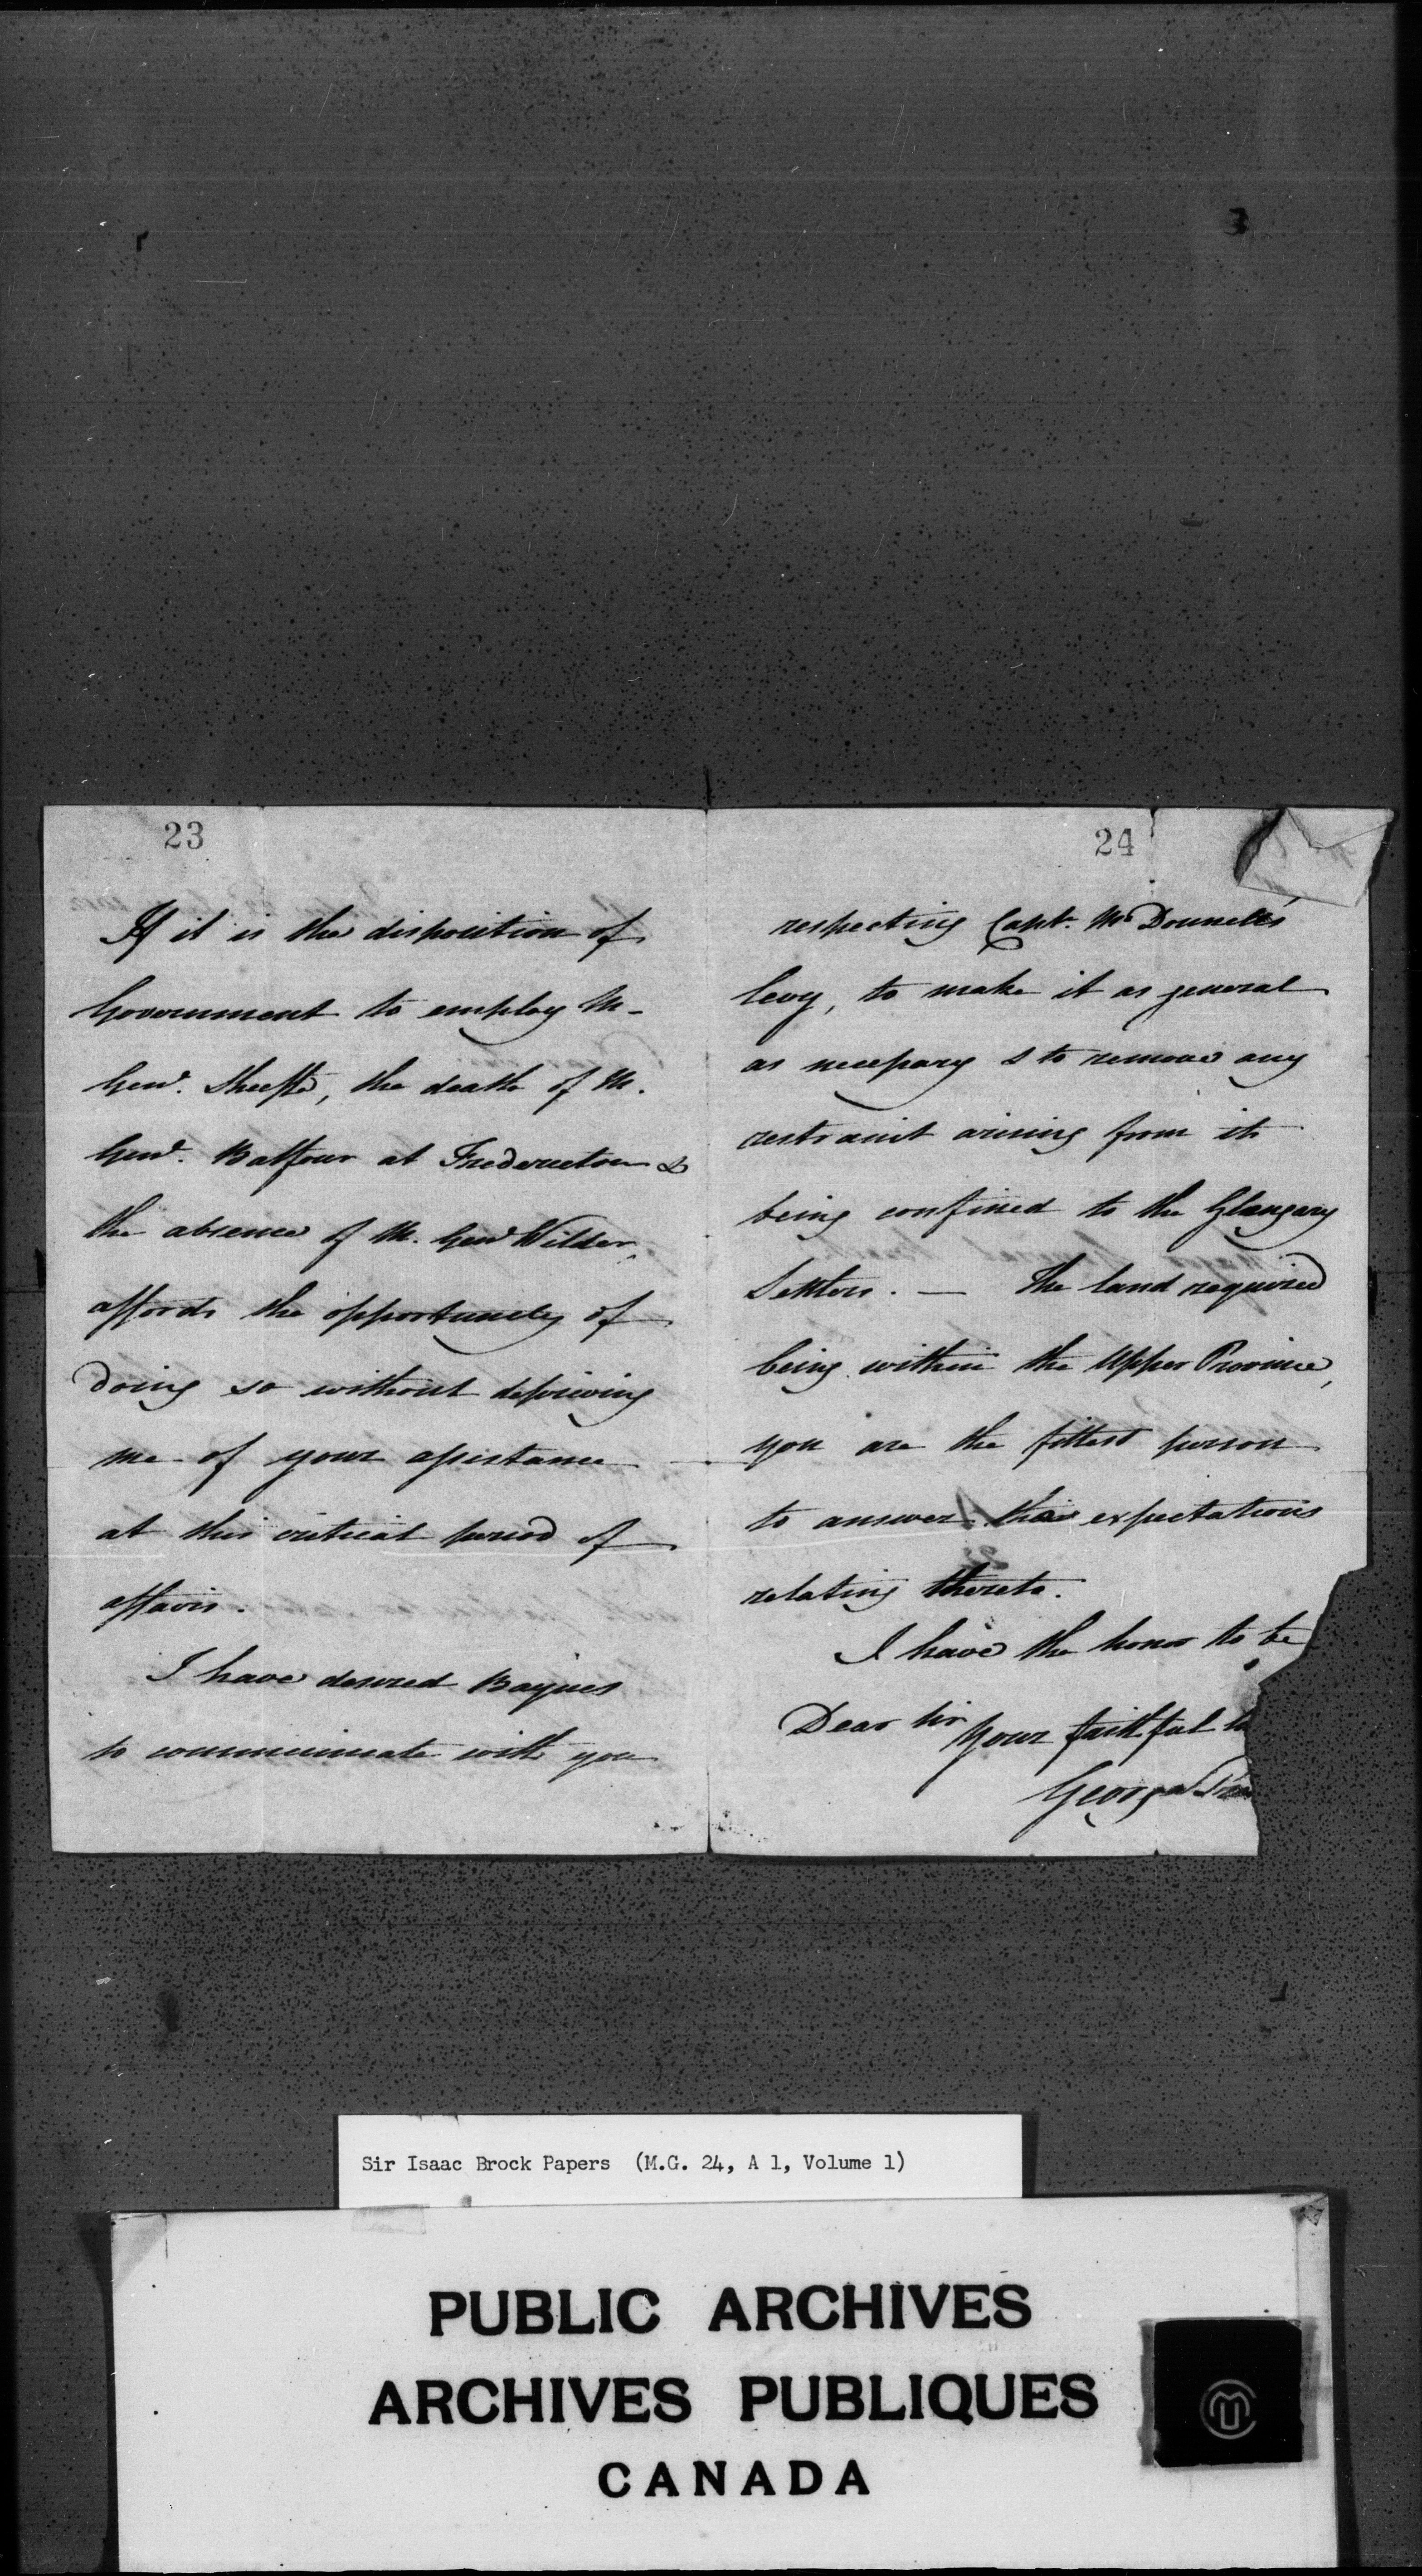 23
If it is the disposition of
Government to employ M-
Genl. Sheaffe, the death of M.
Genl. Balfour at Fredericton &
the absence of M. Genl Wilder,
affords the opportunity of
doing so without depriving
me of your assistance
at this critical period of
affairs.
I have desired Baynes
to communicate with you
24
respecting Capt. McDonnell's
levy, to make it as general
as necessary & to remove any
restraint arising from its
being confined to the Glengary
Settlers. — The land required
being within the Upper Province,
you are the fittest person
to answer the expectations
relating thereto.
I have the honor to be
Dear Sir
your faithful
George
Sir Isaac Brock Papers (M.G. 24, A 1, Volume 1)
PUBLIC ARCHIVES
ARCHIVES PUBLIQUES
CANADA